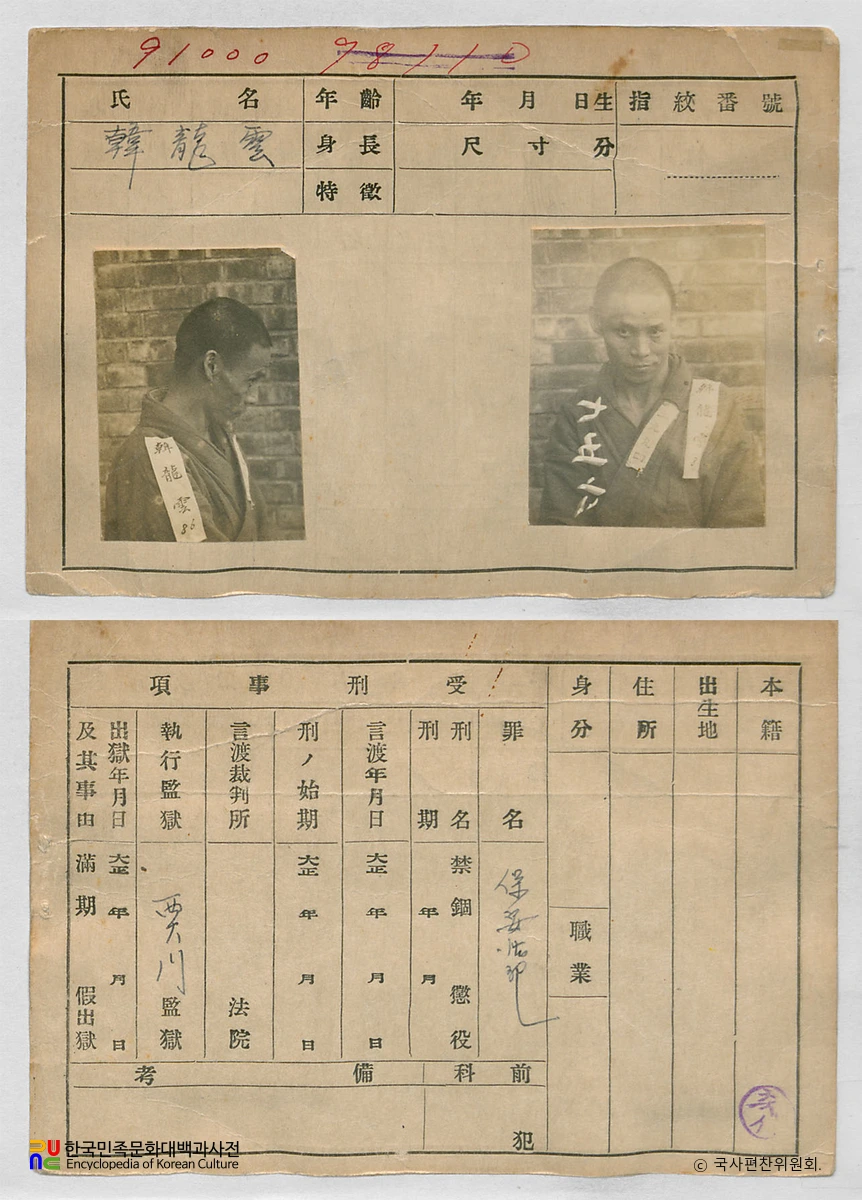 91000 78110
氏名 年齡 年月日生 指紋番號
韓龍雲 身長 尺寸分
特徵
韓龍雲 86
韓龍雲
本籍
出生地
住所
身分
職業
受刑事項
罪名
保安法
刑名 禁錮 懲役
刑期 年 月
言渡年月日 大正 年 月 日
刑ノ始期 大正 年 月 日
言渡裁判所 法院
執行監獄 監獄
出獄年月日 大正 年 月 日
及其事由 滿期 假出獄
前科 犯
備考
한국민족문화대백과사전
Encyclopedia of Korean Culture
© 국사편찬위원회.